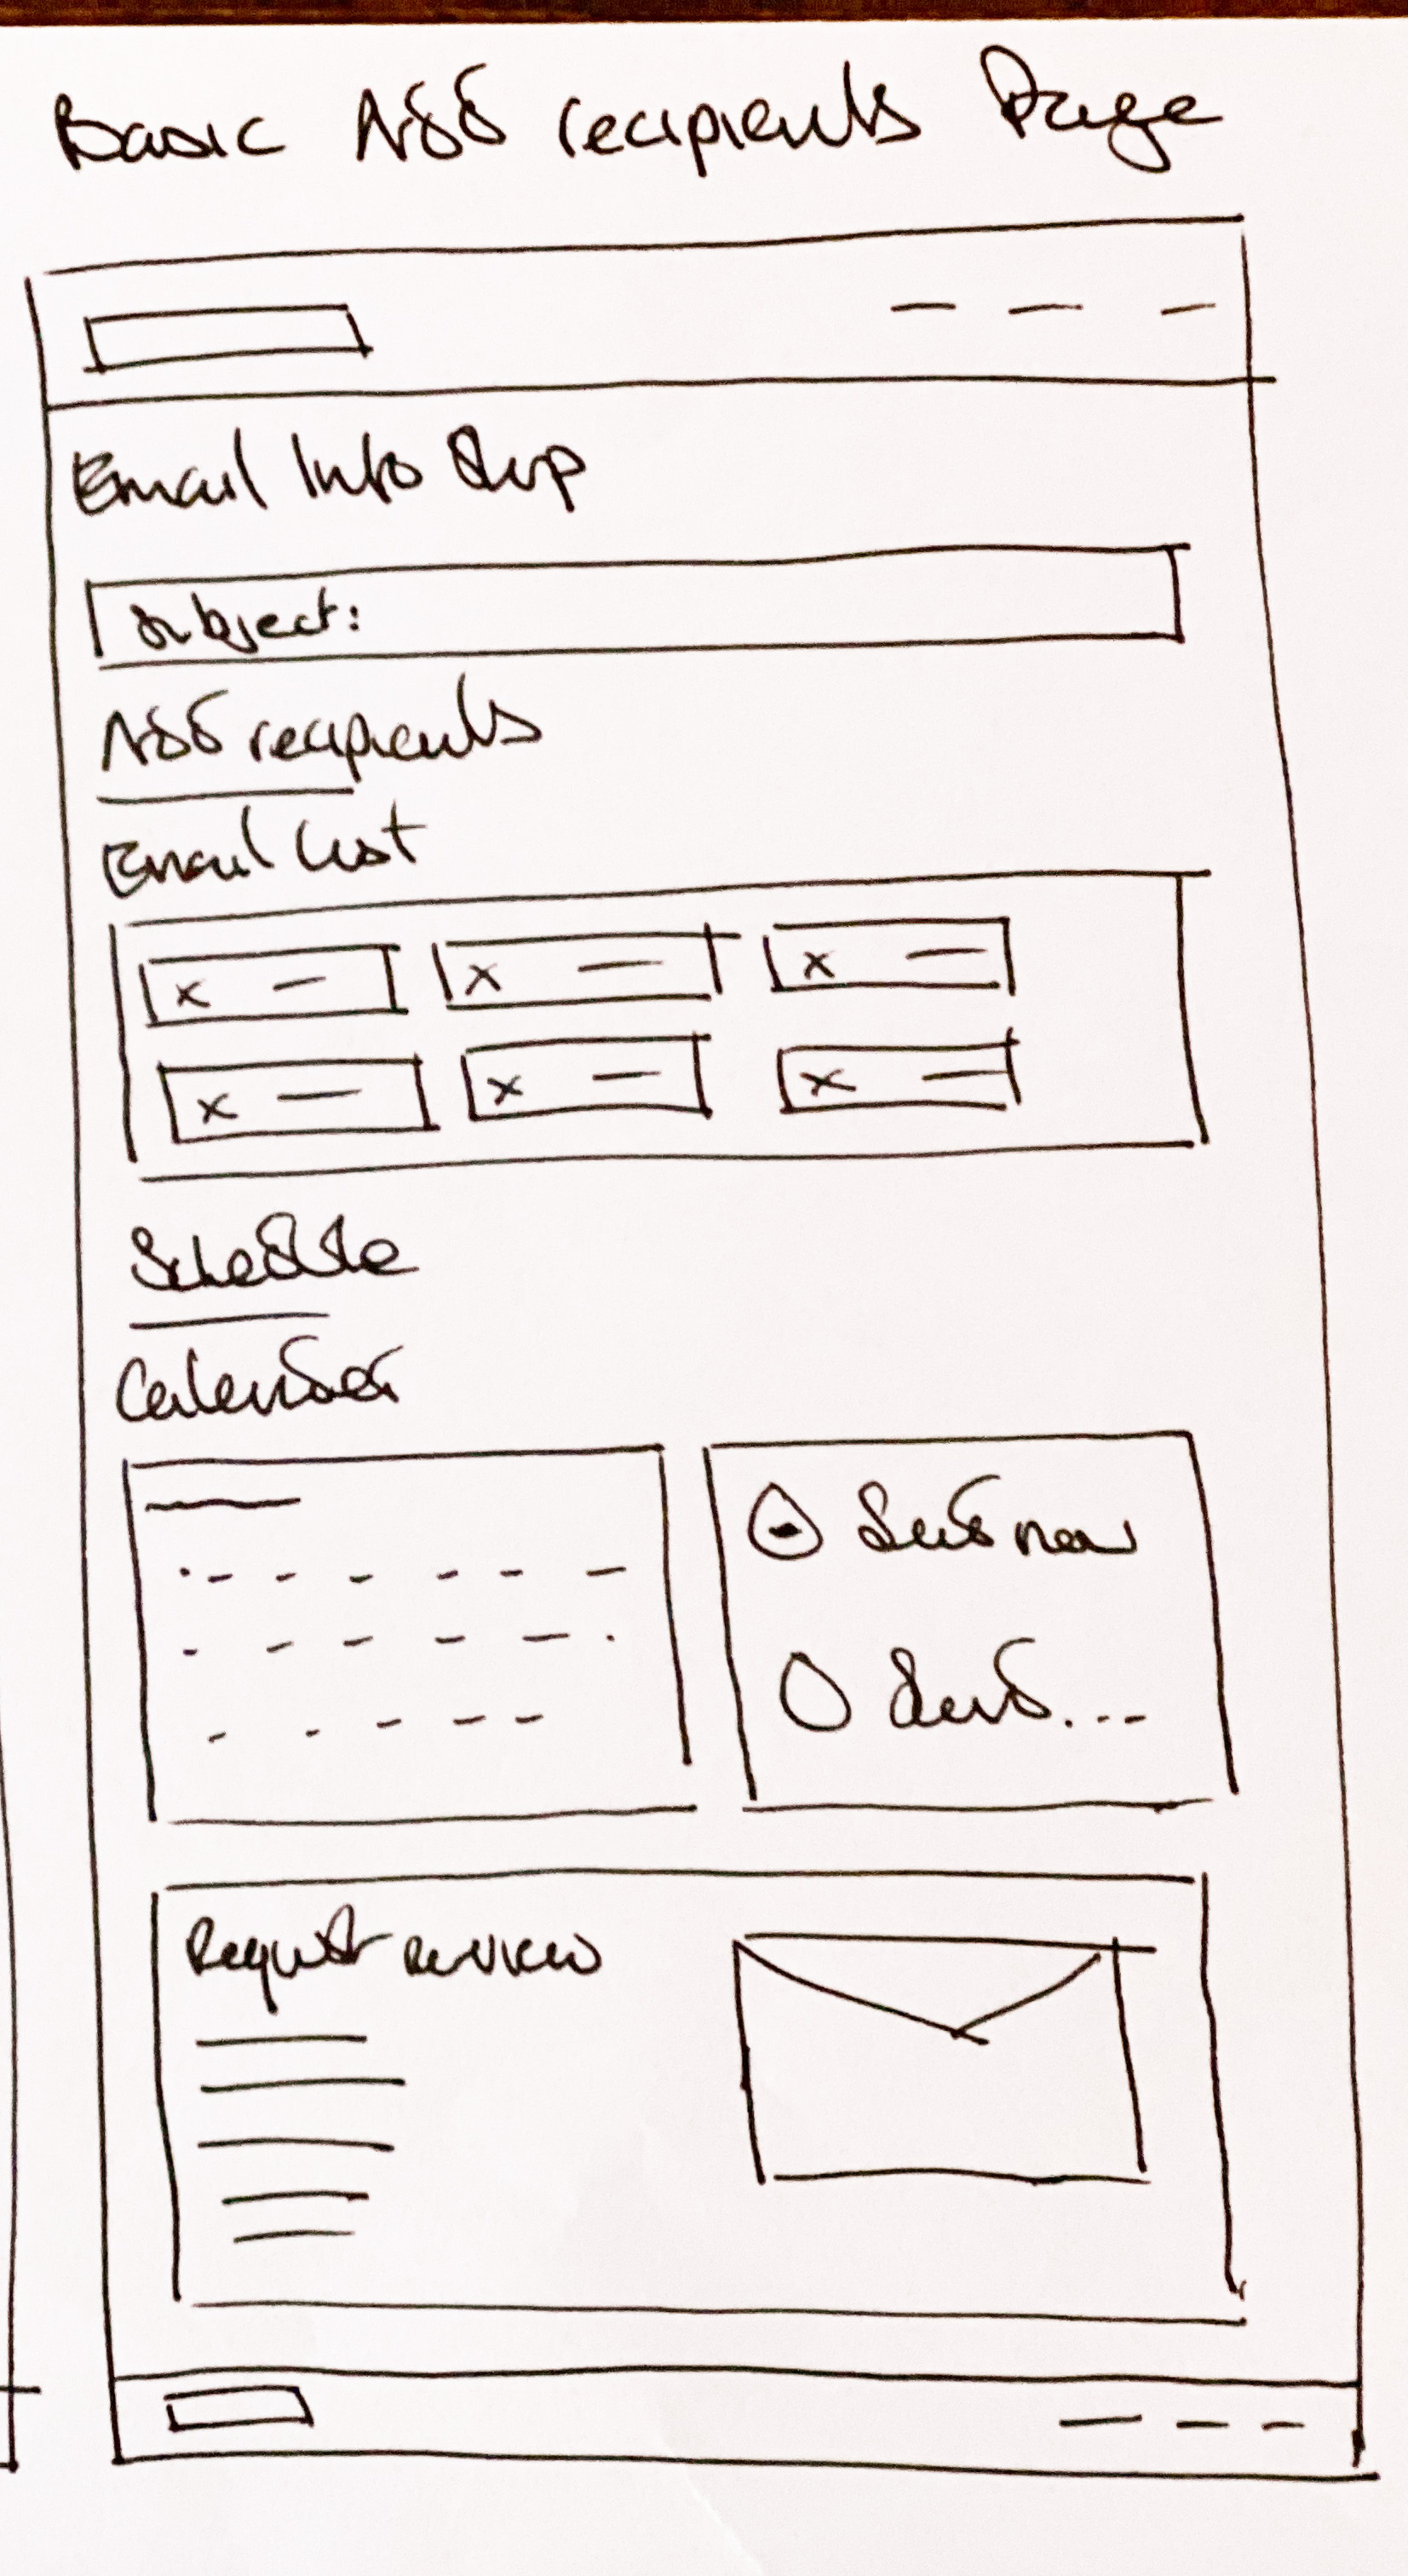 Basic Add recipients Page
Email Info Strip
Subject:
Add recipients
Email List
x x x
x x x
Schedule
Calendar
Send now
Send...
Request review